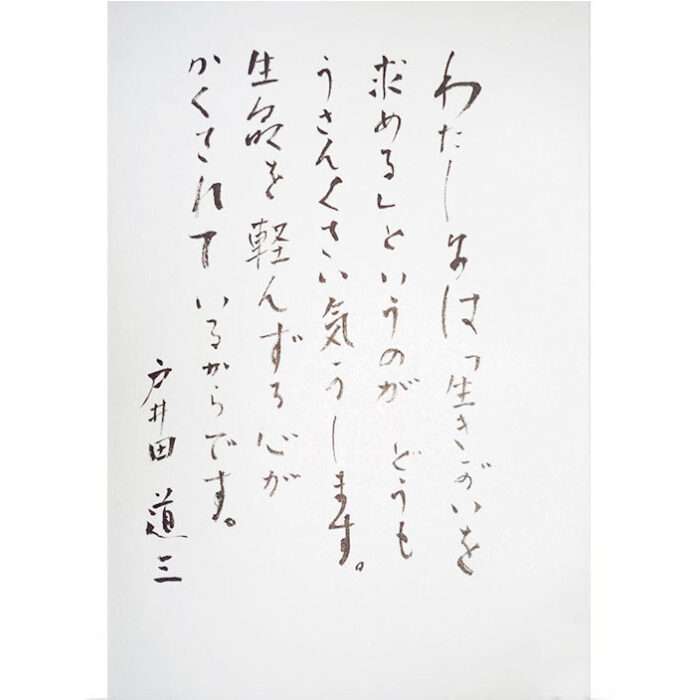 わたしには「生きがいを
求める」というのが どうも
うさんくさい気がします。
生命を軽んずる心が
かくされているからです。
戸井田 道三